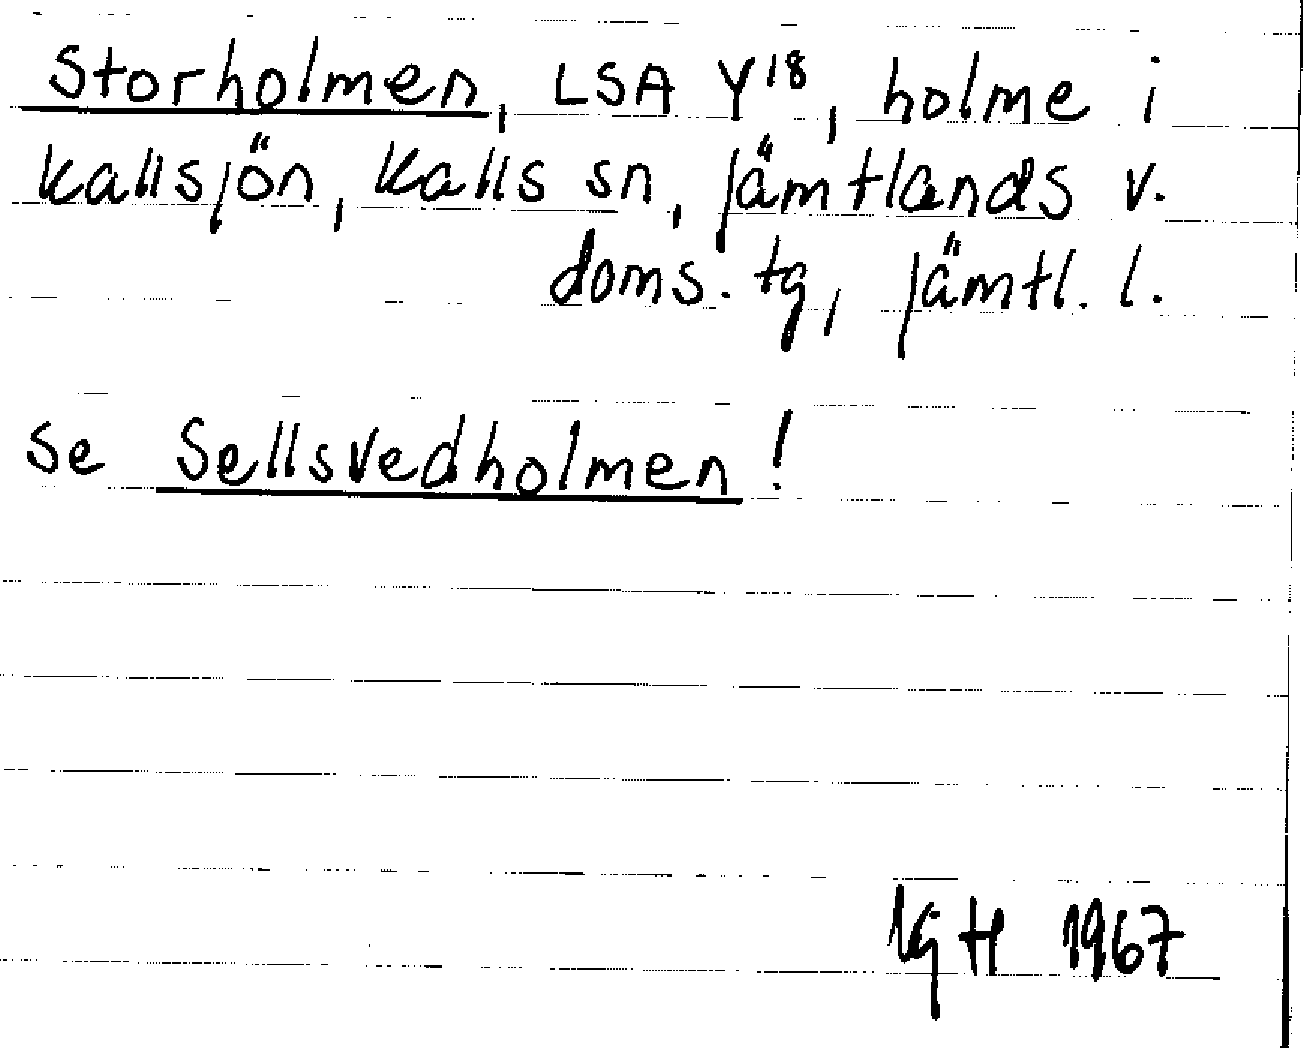 Storholmen, LSA Y18, holme i
Kallsjön, Kalls sn, Jämtlands v.
doms. tg, Jämtl. l.
Se Sellsvedholmen!
1967